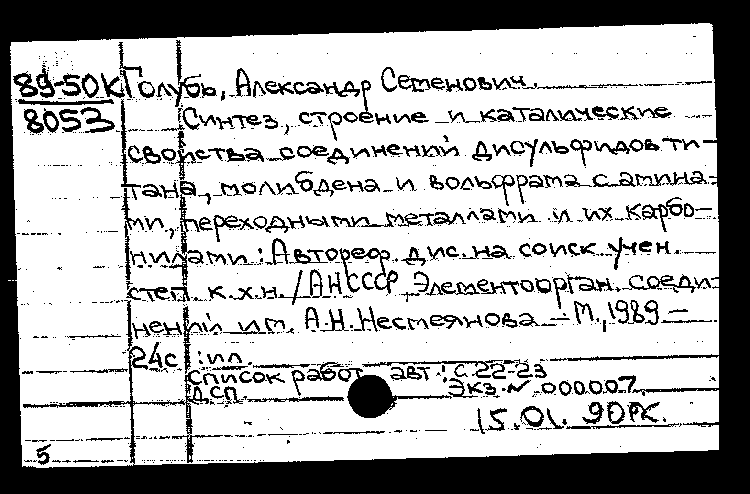 89-50К Голубь, Александр Семенович.
8053 Синтез, строение и каталические
свойства соединений дисульфидов ти-
тана, молибдена и вольфрама с амина-
ми, переходными металлами и их карбо-
нилами : Автореф. дис. на соиск. учен.
степ. к.х.н. / АН СССР, Элементоорган. соеди-
нений им. А.Н. Несмеянова. – М., 1989 –
24с. : ил.
Список работ авт.: с.22-23
ДСП. Экз. № 000007.
15.01.90РК.
5